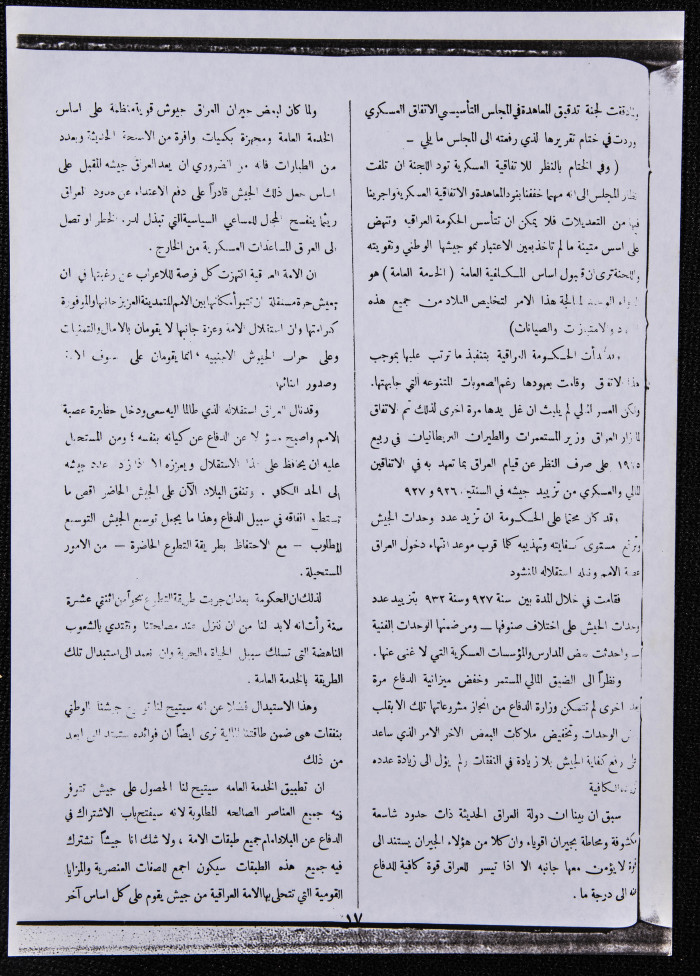 لجنة تدقيق المعاهدة في المجلس التأسيسي الاتفاق العسكري
وردت في ختام تقريرها لذي رفعته الى المجلس ما يلي –
( وفي الختام بالنظر للاتفاقية العسكرية تود اللجنة ان تلفت
المجلس الى انه مهما خففنا بنود المعاهدة والاتفاقية العسكرية واجرينا
من التعديلات فلا يمكن ان تتأسس الحكومة العراقية وتنهض
على اسس متينة ما لم تاخذ بعين الاعتبار نمو جيشها الوطني وتقويته
واللجنة ترى ان قبول اساس المكلفية العامة ( الخدمة العامة ) هو
هذا الامر لتخليص البلاد من جميع هذه
والصيانات)
الحكومة العراقية بتنفيذ ما ترتب عليها بموجب
وقامت بعهودها رغم الصعوبات المتنوعه التي جابهتها.
ولكن العسر المالي لم يلبث ان غل يدها مرة اخرى لذلك تم الاتفاق
العراق وزير المستعمرات والطيران البريطانيان في ربيع
على صرف النظر عن قيام العراق بما تعهد به في الاتفاقين
المالي والعسكري من تزييد جيشه في السنتين ٩٢٦ و ٩٢٧
وقد كان محتما على الحكومة ان تزيد عدد وحدات الجيش
وترفع مستوى كفايته وتهذيبه كلما قرب موعد انتهاء دخول العراق
عصبة الامم ونيله استقلاله المنشود
فقامت في خلال المدة بين سنة ٩٢٧ وسنة ٩٣٢ بتزييد عدد
وحدات الجيش على اختلاف صنوفها – ومن ضمنها الوحدات الفنية
– واحدثت بعض المدارس والمؤسسات العسكرية التي لا غنى عنها .
ونظراً الى الضيق المالي المستمر وخفض ميزانية الدفاع مرة
بعد اخرى لم تتمكن وزارة الدفاع من انجاز مشروعاتها تلك الا بقلب
الوحدات وتخفيض ملاكات البعض الاخر الامر الذي ساعد
على رفع كفاية الجيش بلا زيادة في النفقات ولم يؤل الى زيادة عدده
الكافية
سبق ان بينا ان دولة العراق الحديثة ذات حدود شاسعة
مكشوفة ومحاطة بجيران اقوياء وان كلا من هؤلاء الجيران يستند الى
قوة لا يؤمن معها جانبه الا اذا تيسر للعراق قوة كافية للدفاع
الى درجة ما .
ولما كان لبعض جيران العراق جيوش قوية منظمة على اساس
الخدمة العامة ومجهزة بكميات وافرة من الاسلحة الحديثة وبعدد
من الطيارات فانه من الضروري ان يعد العراق جيشه المقبل على
اساس جعل ذلك الجيش قادراً على دفع الاعتداء عن حدود العراق
ريثما ينفسح المجال للمساعي السياسية التي تبذل لدرء الخطر او تصل
الى العراق المساعدات العسكرية من الخارج .
ان الامة العراقية انتهزت كل فرصة للاعراب عن رغبتها في ان
تعيش حرة مستقلة ان تتبوأ مكانها بين الامم المتمدينة العزيز جانبها والموفورة
كرامتها وان استقلال الامة وعزة جانبها لا يقومان بالامال والتمنيات
وعلى حراب الجيوش الاجنبية ، انما يقومان على
وصدور ابنائها
وقد نال العراق استقلاله الذي طالما اليه سعى ودخل حظيرة عصبة
الامم واصبح مسؤولا عن الدفاع عن كيانه بنفسه ؛ ومن المستحيل
عليه ان يحافظ على هذا الاستقلال ويعززه الا اذا زاد عدد جيشه
إلى الحد الكافي . وتنفق البلاد الآن على الجيش الحاضر اقصى ما
تستطيع انفاقه في سبيل الدفاع وهذا ما يجعل توسيع الجيش التوسيع
المطلوب – مع الاحتفاظ بطريقة التطوع الحاضرة – من الامور
المستحيلة .
لذلك ان الحكومة بعد ان جربت طريقة التطوع نحواً من اثنتي عشرة
سنة رأت انه لابد لنا من ان ننزل عند مصلحتنا ونقتدي بالشعوب
الناهضة التى تسلك سبيل الحياة والحرية وان نعمد الى استبدال تلك
الطريقة بالخدمة العامة .
وهذا الاستبدال فضلا عن انه سيتيح لنا جيشنا الوطني
بنفقات هى ضمن طاقتنا المالية نرى ايضاً ان فوائده ستمتد الى ابعد
من ذلك
ان تطبيق الخدمة العامه سيتيح لنا الحصول على جيش تتوفر
فيه جميع العناصر الصالحه المطلوبة لانه سيفتح باب الاشتراك في
الدفاع عن البلاد امام جميع طبقات الامة ، ولا شك انا جيشاً تشترك
فيه جميع هذه الطبقات سيكون اجمع للصفات العنصرية والمزايا
القومية التي تتحلى بها الامة العراقية من جيش يقوم على كل اساس آخر
١٧